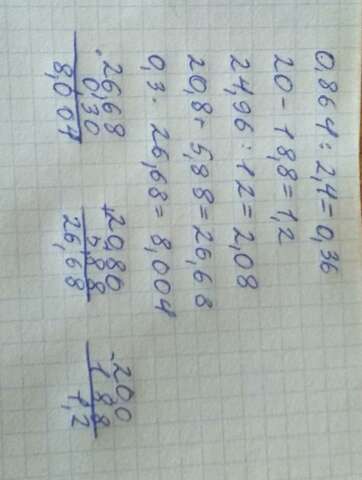 0,864 : 2,4 = 0,36
20 - 18,8 = 1,2
24,96 : 12 = 2,08
20,8 + 5,88 = 26,68
0,3 · 26,68 = 8,004
· 26,68
0,30
8,004
+ 20,80
5,88
26,68
- 200
188
1,2